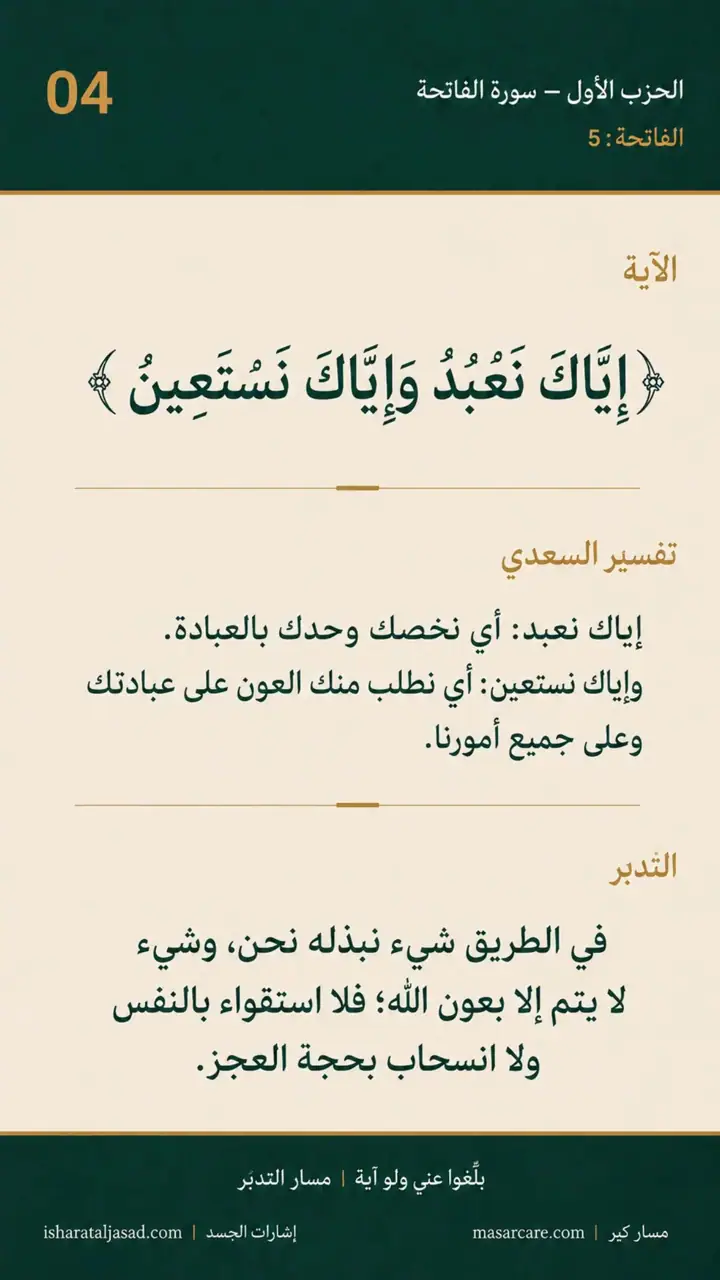 الحزب الأول – سورة الفاتحة
04
الفاتحة: 5
الآية
﴿إِيَّاكَ نَعْبُدُ وَإِيَّاكَ نَسْتَعِينُ﴾
تفسير السعدي
إياك نعبد: أي نخصك وحدك بالعبادة.
وإياك نستعين: أي نطلب منك العون على عبادتك
وعلى جميع أمورنا.
التدبر
في الطريق شيء نبذله نحن، وشيء
لا يتم إلا بعون الله؛ فلا استقواء بالنفس
ولا انسحاب بحجة العجز.
بلِّغوا عني ولو آية | مسار التدبّر
مسار كير | masarcare.com
إشارات الجسد | isharataljasad.com